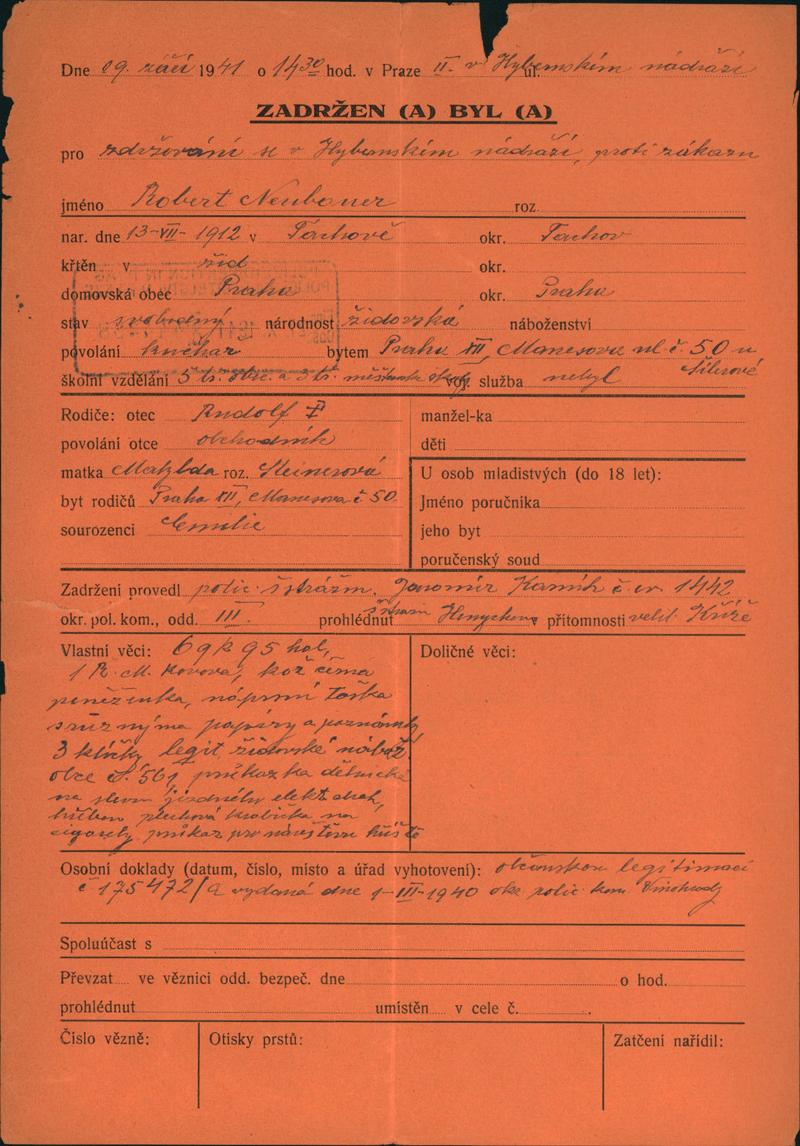 Dne 09. září 1941 o 14 30 hod. v Praze II. v ul. Hybernském nádraží
ZADRŽEN (A) BYL (A)
pro zdržování se v Hybernském nádraží, proti zákazu
jméno Robert Neubauer roz.
nar. dne 13-VII-1912 v Tachově okr. Tachov
křtěn v žid okr.
domovská obec Praha okr. Praha
stav svobodný národnost židovská náboženství
povolání kuchař bytem Praha XII, Manesova ul č. 50 u
školní vzdělání 5 tř. obec. a 3 tř. měšťanské školy voj. služba nebyl
Rodiče: otec Rudolf manžel-ka
povolání otce obchodník děti
matka Matylda roz. Steinerová U osob mladistvých (do 18 let):
byt rodičů Praha XII, Manesova č 50 Jméno poručníka
sourozenci Emilie jeho byt
poručenský soud
Zadržení provedl polic. strážm. Jaromír č. ev. 1442
okr. pol. kom., odd. III. prohlédnut v přítomnosti velit.
Vlastní věci: 69 K 95 hal, Doličné věci:
1 R. M. kovová, kož černá
peněženka, náprsní taška
s různýma papíry a poznámky
3 klíčky legit židovské nábož.
obce č. 561 průkazka dělnická
na slevu jízdného elekt drah,
hřeben plechová krabička na
cigarety průkaz pro
Osobní doklady (datum, číslo, místo a úřad vyhotovení): občanskou legitimaci
č 175472/a vydaná dne 1-III-1940 okr polic kom Vinohrady
Spoluúčast s
Převzat ve věznici odd. bezpeč. dne o hod.
prohlédnut umístěn v cele č.
Číslo vězně: Otisky prstů: Zatčení nařídil: